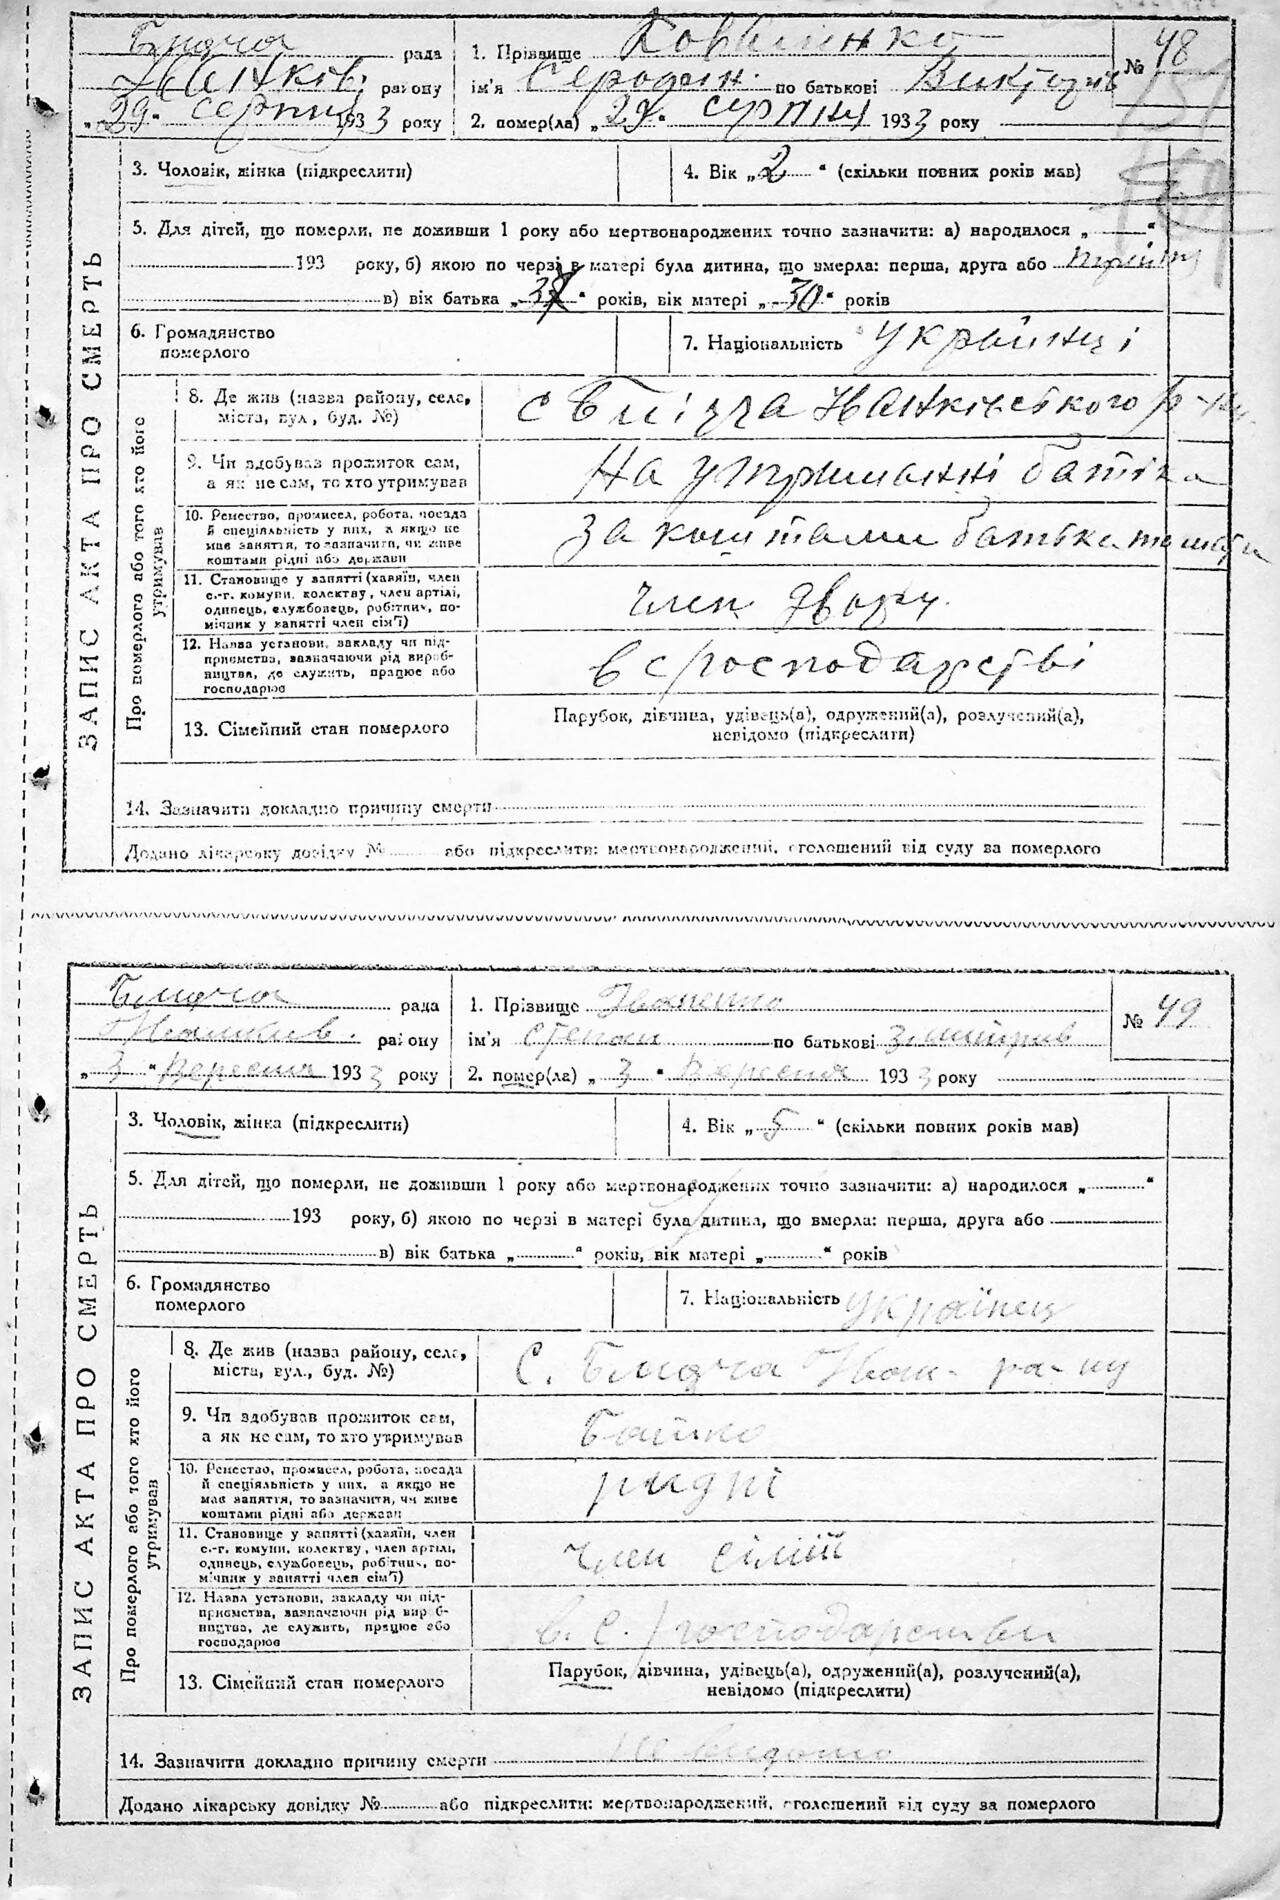 рада
1. Прізвище Коваленко
№ 48
району
ім'я по батькові
„29“ серпня 1933 року
2. помер(ла) „29“ серпня 1933 року
3. Чоловік, жінка (підкреслити)
4. Вік „2“ (скільки повних років мав)
5. Для дітей, що померли, не доживши 1 року або мертвонароджених точно зазначити: а) народилося „ “
193 року, б) якою по черзі в матері була дитина, що вмерла: перша, друга або
в) вік батька „ “ років, вік матері „30“ років
6. Громадянство
померлого
7. Національність українці
ЗАПИС АКТА ПРО СМЕРТЬ
Про померлого або того хто його
утримував
8. Де жив (назва району, села,
міста, вул., буд. №)
с Іванківського р-ну
9. Чи здобував прожиток сам,
а як не сам, то хто утримував
На утриманні батька
10. Ремество, промисел, робота, посада
й спеціяльність у них, а якщо не
мав заняття, то зазначити, чи живе
коштами рідні або держави
за коштами батька
11. Становище у занятті (хазяїн, член
с.-г. комуни, колективу, член артілі,
одинець, службовець, робітник, по-
мічник у занятті член сім'ї)
член двору
12. Назва установи, закладу чи під-
приємства, зазначаючи рід вироб-
ництва, де служить, працює або
господарює
в с/господарстві
13. Сімейний стан померлого
Парубок, дівчина, удівець(а), одружений(а), розлучений(а),
невідомо (підкреслити)
14. Зазначити докладно причину смерти
Додано лікарську довідку № або підкреслити: мертвонароджений, оголошений від суду за померлого
рада
1. Прізвище Іваненко
№ 49
району
ім'я Степан по батькові
„3“ Вересня 1933 року
2. помер(ла) „3“ Вересня 1933 року
3. Чоловік, жінка (підкреслити)
4. Вік „5“ (скільки повних років мав)
5. Для дітей, що померли, не доживши 1 року або мертвонароджених точно зазначити: а) народилося „ “
193 року, б) якою по черзі в матері була дитина, що вмерла: перша, друга або
в) вік батька „ “ років, вік матері „ “ років
6. Громадянство
померлого
7. Національність Українец
ЗАПИС АКТА ПРО СМЕРТЬ
Про померлого або того хто його
утримував
8. Де жив (назва району, села,
міста, вул., буд. №)
С. Блидча Іван- ра-ну
9. Чи здобував прожиток сам,
а як не сам, то хто утримував
Батько
10. Ремество, промисел, робота, посада
й спеціяльність у них, а якщо не
мав заняття, то зазначити, чи живе
коштами рідні або держави
ридні
11. Становище у занятті (хазяїн, член
с.-г. комуни, колективу, член артілі,
одинець, службовець, робітник, по-
мічник у занятті член сім'ї)
член сімїї
12. Назва установи, закладу чи під-
приємства, зазначаючи рід вироб-
ництва, де служить, працює або
господарює
в. с. /господарстви
13. Сімейний стан померлого
Парубок, дівчина, удівець(а), одружений(а), розлучений(а),
невідомо (підкреслити)
14. Зазначити докладно причину смерти Не видомо
Додано лікарську довідку № або підкреслити: мертвонароджений, оголошений від суду за померлого